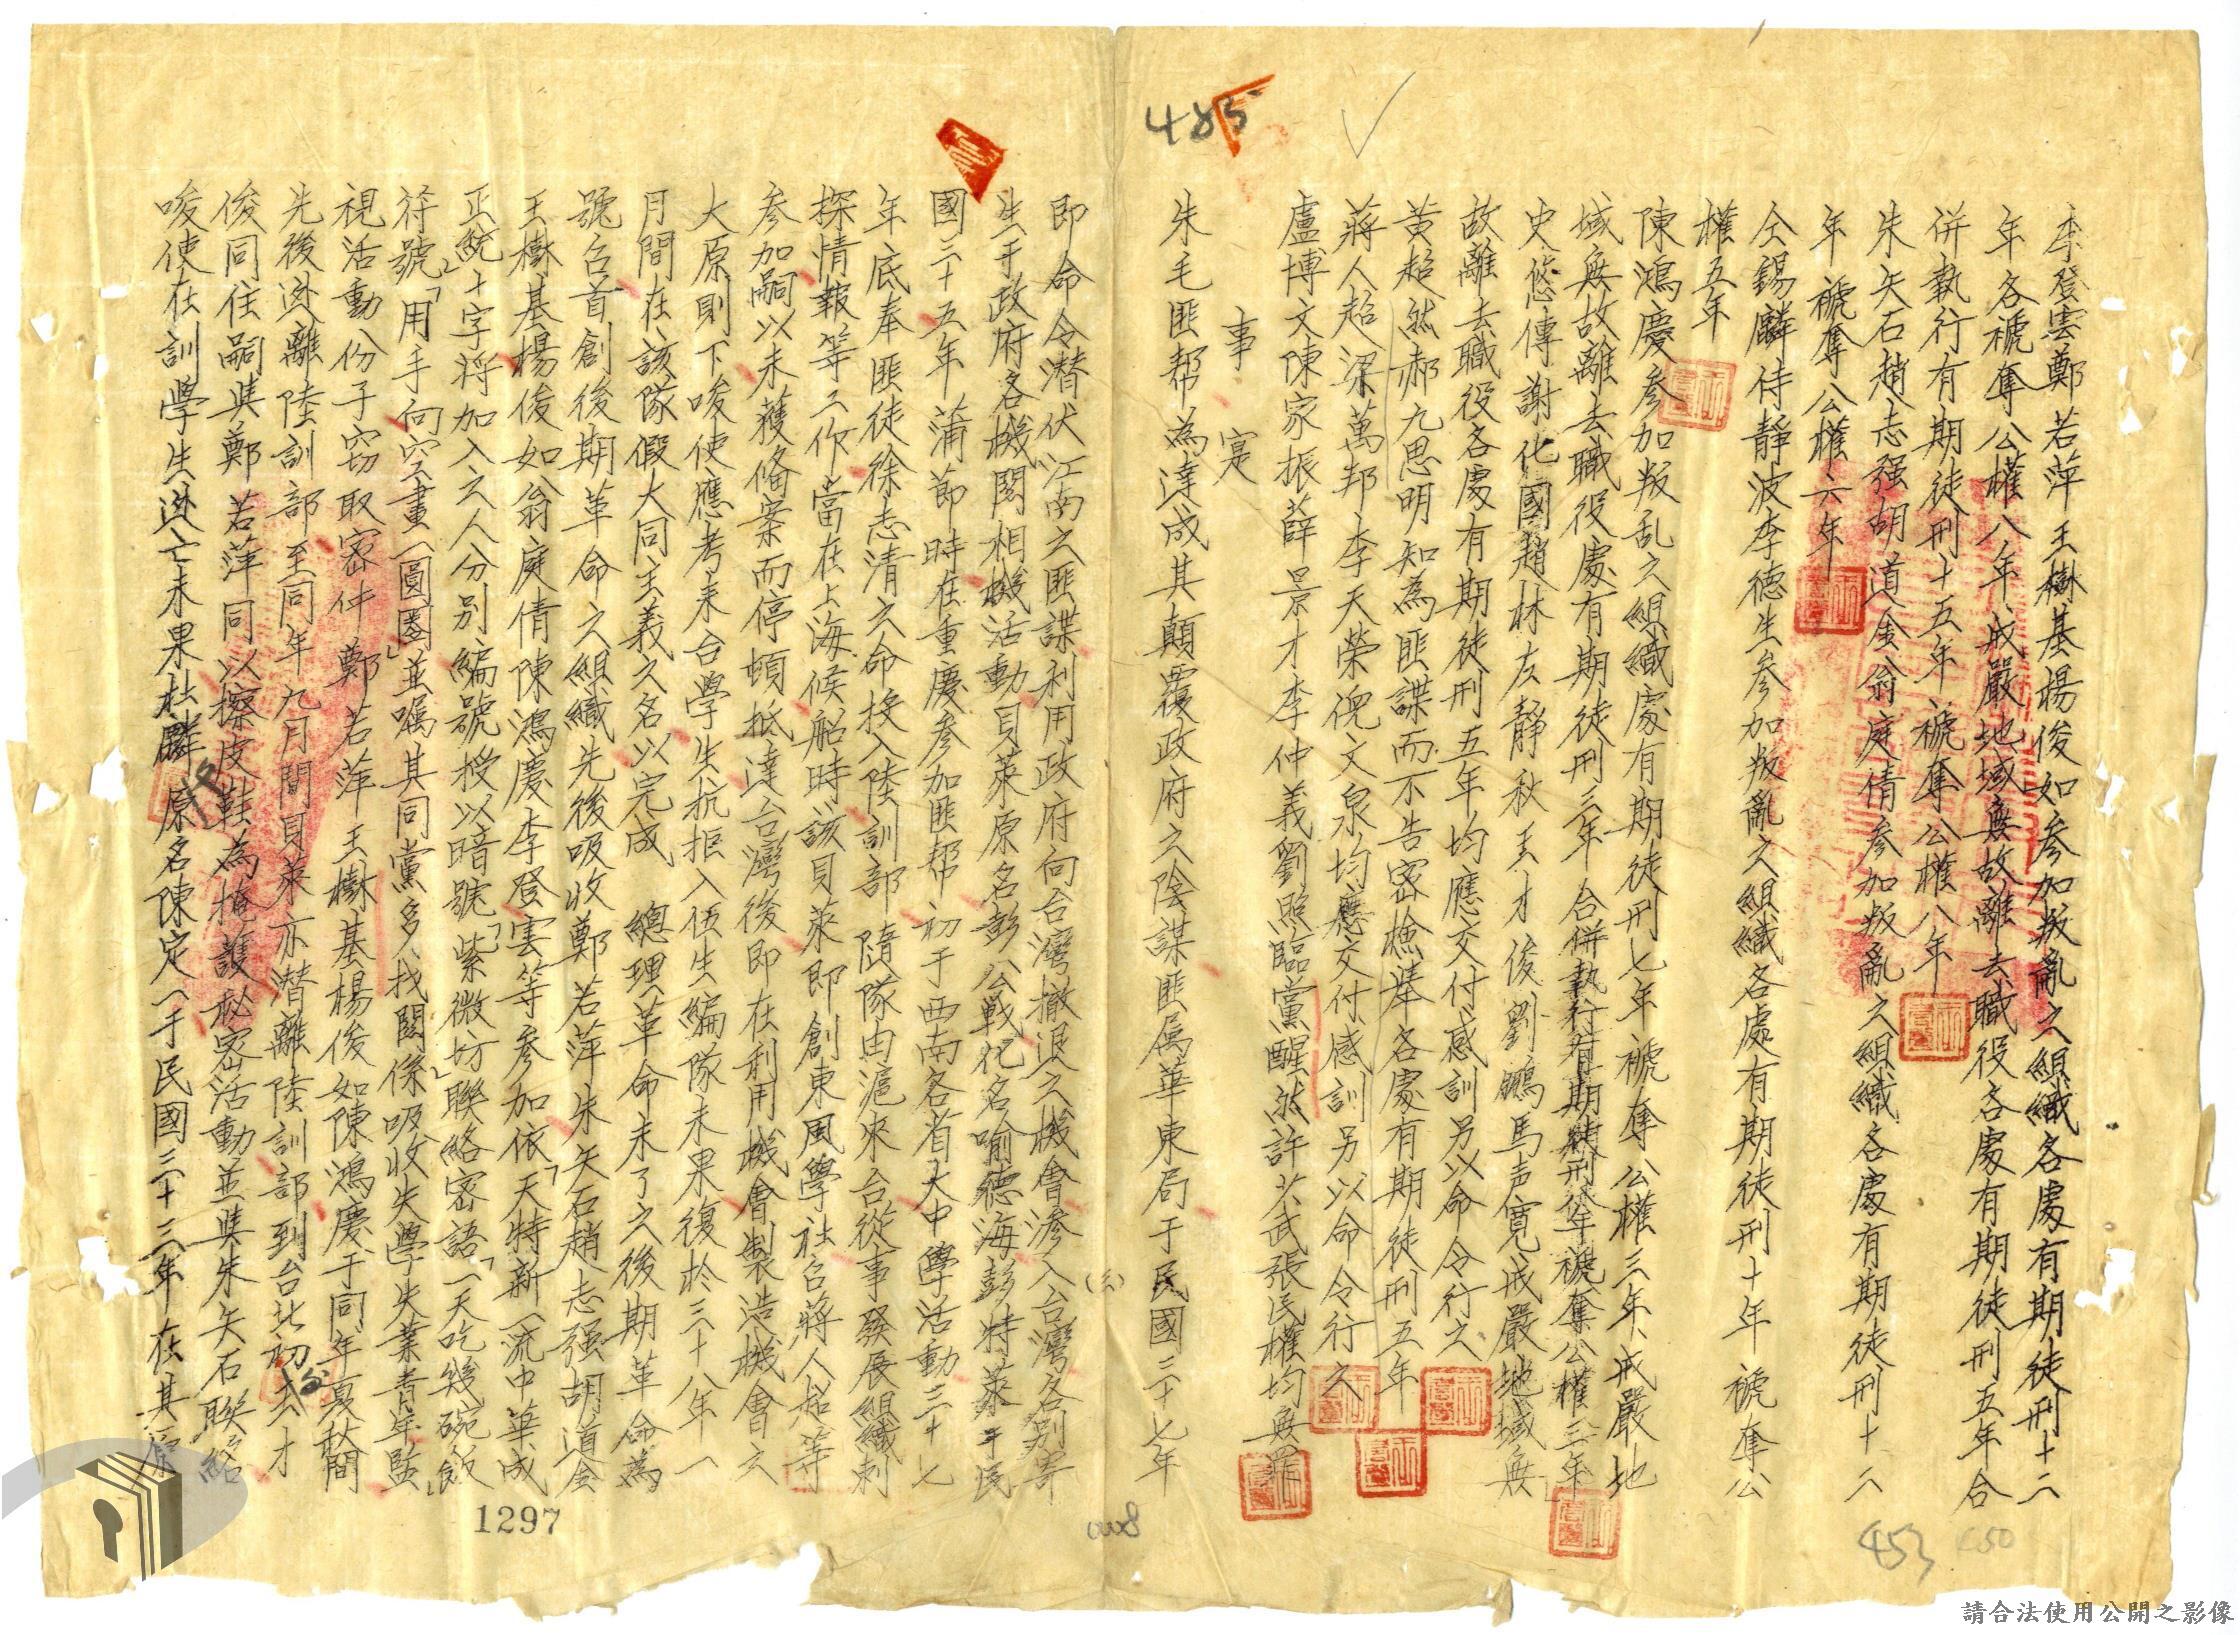 李登雲鄭若萍王樹基楊俊如參加叛亂之組織各處有期徒刑十二
年各褫奪公權八年戒嚴地域無故離去職役各處有期徒刑五年合
併執行有期徒刑十五年褫奪公權八年
朱矢石趙志强胡道金翁庭倩參加叛亂之組織各處有期徒刑十二
年褫奪公權六年
仝錫麟侍靜波李德生參加叛亂之組織各處有期徒刑十年褫奪公
權五年
陳鴻慶參加叛乱之組織處有期徒刑七年褫奪公權三年戒嚴地
域無故離去職役處有期徒刑三年合併執行有期徒刑年褫奪公權三年
史悠傳謝化國趙林友靜秋王才俊劉鵬馬声寬戒嚴地域無
故離去職役各處有期徒刑五年均應交付感訓另以命令行之
黃超然郝九思明知為匪諜而不告密檢舉各處有期徒刑五年
蔣人超梁萬邦李天榮倪文泉均應交付感訓另以命令行之
盧博文陳家振薛景才李仲義劉照臨黨醒然許武張民權均無罪
事 寔
朱毛匪帮為達成其顛覆政府之陰謀匪属華東局于民國三十七年
即命令潛伏江南之匪諜利用政府向台灣撤退之機會滲入台灣各別寄
生于政府各機関相機活動貝萊原名彭公戰化名喻德海彭特萊于民
國三十五年蒲節時在重慶參加匪帮初于西南各省大中學活動三十七
年底奉匪徒徐志清之命投入陸訓部隨隊由滬來台從事發展組織刺
探情報等工作當在上海候船時該貝萊即創東風學社名蔣人超等
參加嗣以未獲俻案而停頓抵達台灣後即在利用機會製造機會之
大原則下唆使應考來台學生抗拒入伍生編隊未果復於三十八年一
月間在該隊假大同主義之名以完成 總理革命未了之後期革命為
號召首創後期革命之組織先後吸收鄭若萍朱矢石趙志强胡道金
王樹基楊俊如翁庭倩陳鴻慶李登雲等參加依「天特新一流中華成
正統」十字將加入之人分別編號授以暗號「紫微坊」聯絡密語「一天吃幾碗飯」
符號「用手向空畫一圓圈」並嘱其同黨多找関係吸收失學失業青年監
視活動份子窃取密件鄭若萍王樹基楊俊如陳鴻慶于同年夏秋間
先後逃離陸訓部至同年九月間貝萊亦潛離陸訓部到台北初王才
俊同住嗣與鄭若萍同以擦皮鞋為掩護秘密活動並與朱矢石聯絡
唆使在訓學生逃亡未果杜麟原名陳定一于民國三十三年在其原
485
453
450
(三)
0008
1297
請合法使用公開之影像